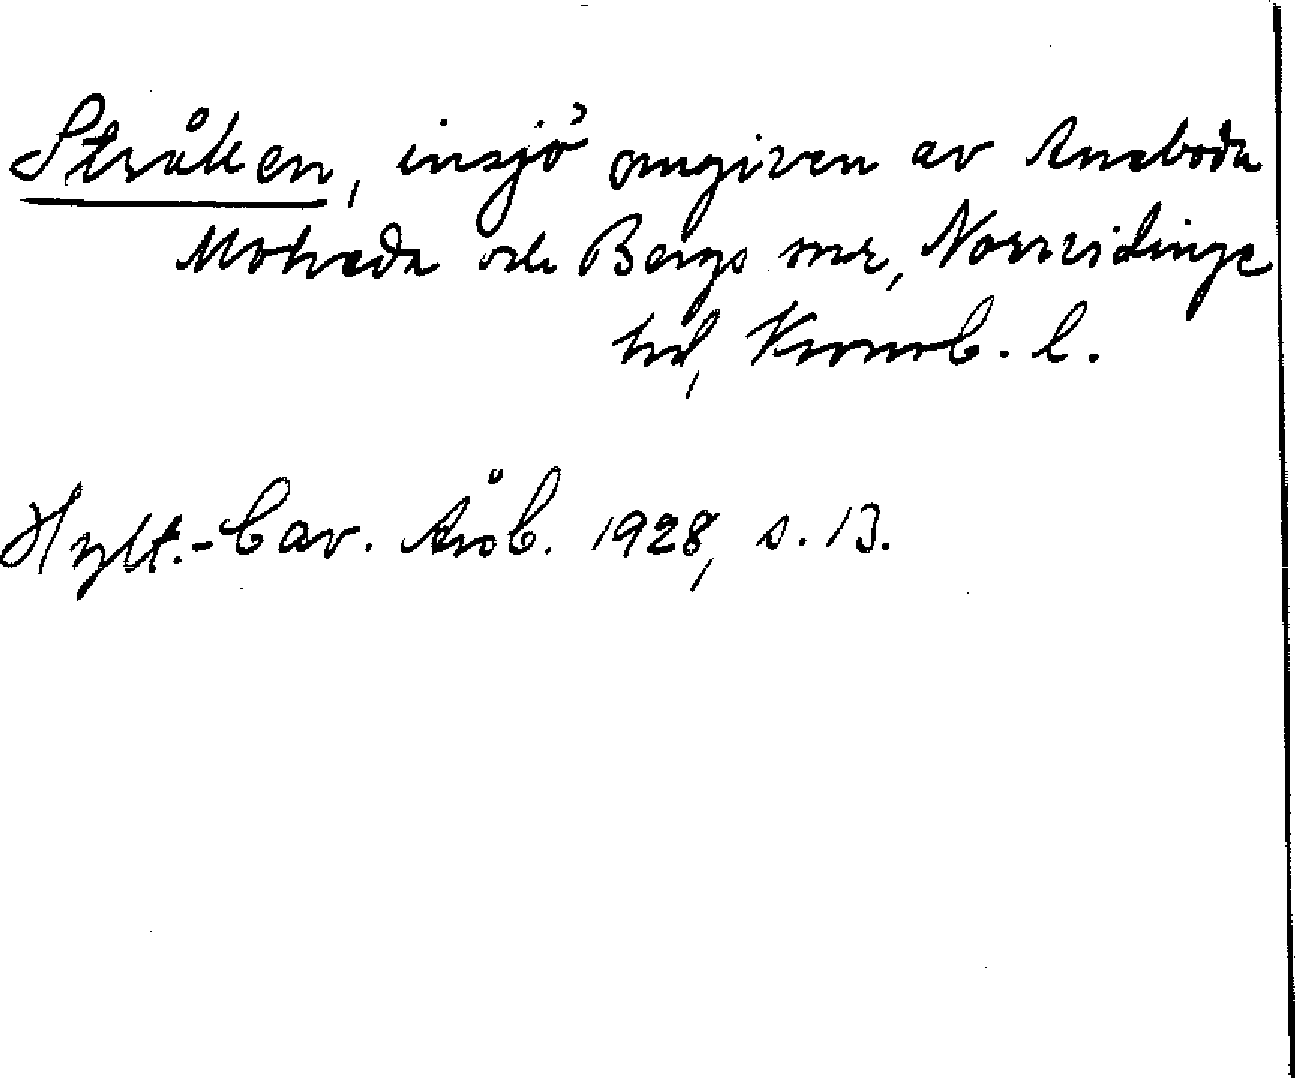 Stråken, insjö omgiven av Aneboda
Moheda och Bergs snr, Norrvidinge
hd, Kronob. l.
Hylt.-Cav. Årsb. 1928, s. 13.